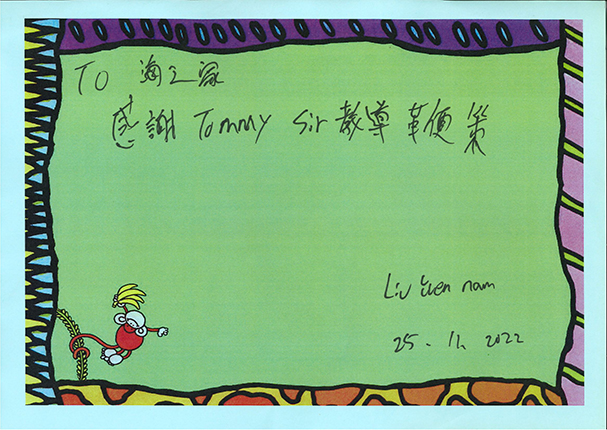 TO 海之家
感謝 Tommy Sir 教導 革便 策
Liu Yuen nam
25 - 11. 2022